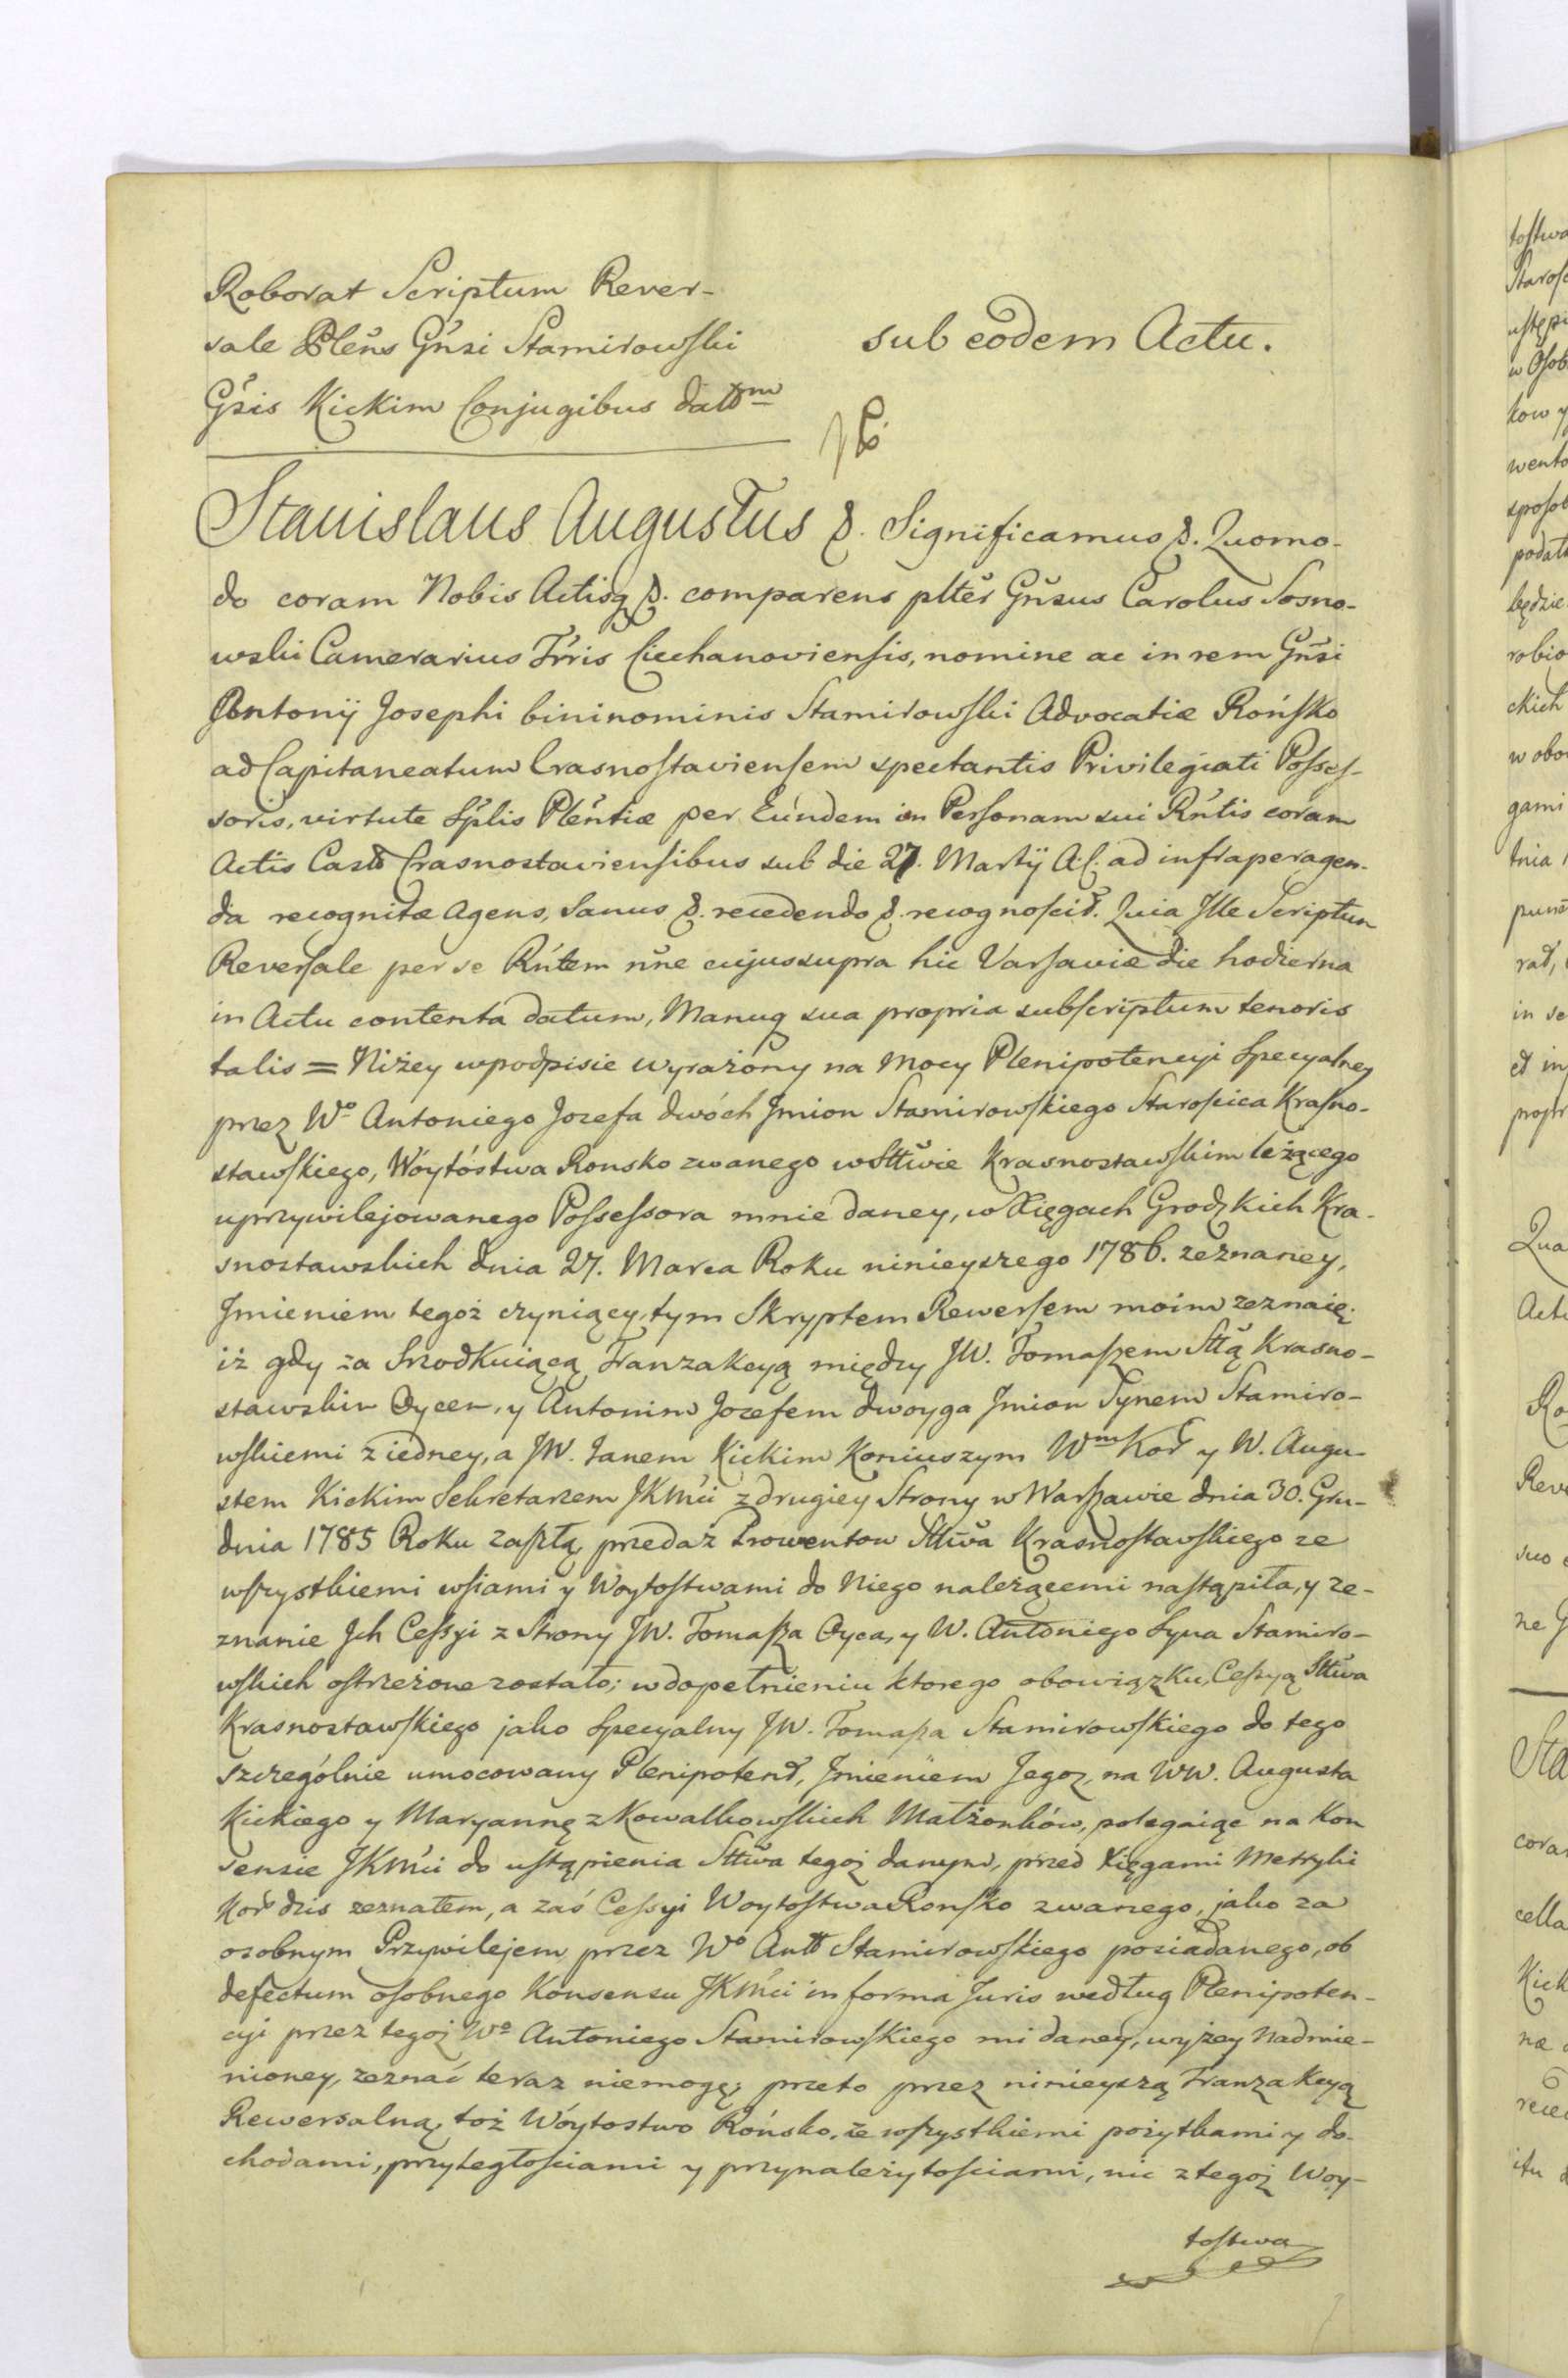 Roborat Scriptum Rever-
sale Plēns Gn̄si Stamirowski
Gn̄sis Kickim Conjugibus datt͞m
sub eodem Actu.
Stanislaus Augustus &. Significamus &. Quomo-
do coram Nobis Actisq &. comparens pltēr Gn̄sus Carolus Sosno-
wski Camerarius Tr̄ris Ciechanoviensis, nomine ac in rem Gn̄si
Antonij Josephi bininominis Stamirowski Advocatiæ Rońsko
ad Capitaneatum Crasnostaviensem spectantis Privilegiati Posses-
soris, virtute Sp̄lis Plēntiæ per Eundem in Personam sui Rn̄tis coram
Actis Castr Crasnostaviensibus sub die 27. Martij A: C: ad infraperagen-
da recognitæ Agens, Sanus &. recedendo &. recognoscit. Quia Ille Scriptum
Reversale per se Rn̄tem nn̄e cujus supra hic Varsaviæ die hodierna
in Actu contenta datum, Manuq sua propria subscriptum tenoris
talis = Niżey wpodpisie wyrażony na Mocy Plenipotencyi Specyalney
przez Wo Antoniego Jozefa dwóch Jmion Stamirowskiego Starościca Krasno-
stawskiego, Wóytóstwa Ronsko zwanego w Sttwie Krasnostawskim leżącego
uprzywilejowanego Possessora mnie daney, w Xięgach Grodzkich Kra-
snostawskich dnia 27. Marca Roku ninieyszego 1786. zeznaney,
Jmieniem tegoż czyniący, tym Skryptem Rewersem moim zeznaię,
iż gdy za Srzodkuiącą Tranzakcyą między JW. Tomaszem Sttą Krasno-
stawskim Oycem, y Antonim Jozefem dwoyga Jmion Synem Stamiro-
wskiemi z iedney, a JW. Janem Kickim Koniuszym Wm Kor y W. Augu-
stem Kickim Sekretarzem JKMci z drugiey Strony w Warszawie dnia 30. Gru-
dnia 1785 Roku zaszłą, przedaż Prowentow Sttwa Krasnostawskiego ze
wszystkiemi wsiami y Woytostwami do Niego należącemi nastąpiła, y ze-
znanie Jch Cessyi z Strony JW. Tomasza Oyca, y W. Antoniego Syna Stamiro-
wskich ostrzeżone zostało; w dopełnieniu ktorego obowiązku, Cessyą Sttwa
Krasnostawskiego jako Specyalny JW. Tomasza Stamirowskiego do tego
szczególnie umocowany Plenipotent, Jmieniem Jegoz, na WW. Augusta
Kickiego y Maryannę z Kowalkowskich Małżonków, polegaiąc na Kon
sensie JKMci do ustąpienia Sttwa tegoż danym, przed Xięgami Metryki
Kor dzis zeznałem, a zaś Cessyi Woytostwa Ronsko zwanego, jako za
osobnym Przywilejem przez Wo Antt Stamirowskiego posiadanego, ob
defectum osobnego Konsensu JKMci in forma Juris według Plenipoten-
cyi przez tegoż Wo Antoniego Stamirowskiego mi daney, wyżey nadmie-
nioney, zeznać teraz niemogę; przeto przez ninieyszą Tranzakcyą
Rewersalną, toż Wóytostwo Rońsko, ze wszystkiemi pożytkami y do-
chodami, przyległościami y przynależytościami, nic z tegoż Woy-
tostwa